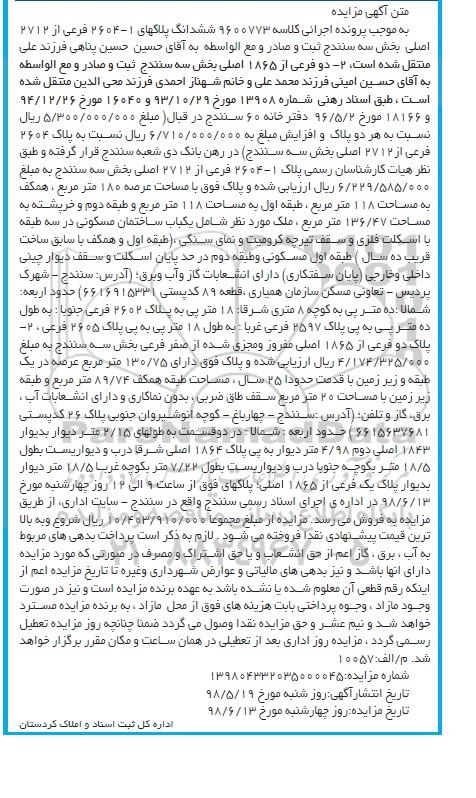 متن آگهی مزایده
به موجب پرونده اجرائی کلاسه ۹۶۰۰۷۷۳ ششدانگ پلاکهای ۱-۲۶۰۴ فرعی از ۲۷۱۲
اصلی بخش سه سنندج ثبت و صادر و مع الواسطه به آقای حسین حسین پناهی فرزند علی
منتقل شده است، ۲- دو فرعی از ۱۸۶۵ اصلی بخش سه سنندج ثبت و صادر و مع الواسطه
به آقای حسین امینی فرزند محمد علی و خانم شهناز احمدی فرزند محی الدین منتقل شده
است ، طبق اسناد رهنی شماره ۱۳۹۰۸ مورخ ۹۳/۱۰/۲۹ و ۱۶۰۴۰ مورخ ۹۴/۱۲/۲۶
و ۱۸۱۶۶ مورخ ۹۶/۵/۲ دفتر خانه ۶۰ سنندج در قبال( مبلغ ۵/۳۰۰/۰۰۰/۰۰۰ ریال
نسبت به هر دو پلاک و افزایش مبلغ به ۶/۷۱۰/۰۰۰/۰۰۰ ریال نسبت به پلاک ۲۶۰۴
فرعی از ۲۷۱۲ اصلی بخش سه سنندج) در رهن بانک دی شعبه سنندج قرار گرفته و طبق
نظر هیات کارشناسان رسمی پلاک ۱-۲۶۰۴ فرعی از ۲۷۱۲ اصلی بخش سه سنندج به مبلغ
۶/۲۲۹/۵۸۵/۰۰۰ ریال ارزیابی شده و پلاک فوق با مساحت عرصه ۱۸۰ متر مربع ، همکف
به مساحت ۱۱۸ متر مربع ، طبقه اول به مساحت ۱۱۸ متر مربع و طبقه دوم و خرپشته به
مساحت ۱۳۶/۴۷ متر مربع ، ملک مورد نظر شامل یکباب ساختمان مسکونی در سه طبقه
با اسکلت فلزی و سقف تیرچه کرومیت و نمای سنگی ،(طبقه اول و همکف با سابق ساخت
قریب ده سال ) طبقه اول مسکونی وطبقه دوم در حد پایان اسکلت و سقف دیوار چینی
داخلی وخارجی (پایان سفتکاری) دارای انشعابات گاز وآب وبرق؛ (آدرس: سنندج - شهرک
پردیس - تعاونی مسکن سازمان همیاری ،قطعه ۸۹ کدپستی ۶۶۱۶۹۱۵۳۳۱) حدود اربعه:
شمالا :ده متر پی به کوچه ۸ متری شرقا: ۱۸ متر پی به پلاک ۲۶۰۲ فرعی جنوبا : به طول
ده متر پی به پی پلاک ۲۵۹۷ فرعی غربا : به طول ۱۸ متر پی به پی پلاک ۲۶۰۵ فرعی ، ۲-
پلاک دو فرعی از ۱۸۶۵ اصلی مفروز ومجزی شده از صفر فرعی بخش سه سنندج به مبلغ
۴/۱۷۴/۳۲۵/۰۰۰ ریال ارزیابی شده و پلاک فوق دارای ۱۳۰/۷۵ متر مربع عرصه در یک
طبقه و زیر زمین با قدمت حدودا ۲۵ سال ، مساحت طبقه همکف ۸۹/۷۴ متر مربع و طبقه
زیر زمین با مساحت ۲۰ متر مربع سقف طاق ضربی ، بدون نماکاری و دارای انشعابات آب ،
برق، گاز و تلفن؛ (آدرس :سنندج - چهارباغ - کوچه انوشیروان جنوبی پلاک ۲۶ کدپستی
۶۶۱۵۶۳۷۶۸۱ ) حدود اربعه : شمالا : در دوقسمت به طولهای ۲/۱۵ متر دیوار بدیوار
۱۸۴۳ اصلی دوم ۴/۹۸ متر دیوار به پی پلاک ۱۸۶۴ اصلی شرقا درب و دیواریست بطول
۱۸/۵ متر بکوچه جنوبا درب و دیواریست بطول ۷/۲۲ متر بکوچه غربا ۱۸/۵ متر دیوار
بدیوار پلاک یک فرعی از ۱۸۶۵ اصلی؛ پلاکهای فوق از ساعت ۹ الی ۱۲ روز چهارشنبه مورخ
۹۸/۶/۱۳ در اداره ی اجرای اسناد رسمی سنندج واقع در سنندج - سایت اداری، از طریق
مزایده به فروش می رسد. مزایده از مبلغ مجموعا ۱۰/۴۰۳/۹۱۰/۰۰۰ ریال شروع وبه بالا
ترین قیمت پیشنهادی نقدا فروخته می شود . لازم به ذکر است پرداخت بدهی های مربوط
به آب ، برق ، گاز اعم از حق انشعاب و یا حق اشتراک و مصرف در صورتی که مورد مزایده
دارای انها باشد و نیز بدهی های مالیاتی و عوارض شهرداری وغیره تا تاریخ مزایده اعم از
اینکه رقم قطعی آن معلوم شده یا نشده باشد به عهده برنده مزایده است و نیز در صورت
وجود مازاد ، وجوه پرداختی بابت هزینه های فوق از محل مازاد ، به برنده مزایده مسترد
خواهد شد و نیم عشر و حق مزایده نقدا وصول می گردد ضمنا چنانچه روز مزایده تعطیل
رسمی گردد ، مزایده روز اداری بعد از تعطیلی در همان ساعت و مکان مقرر برگزار خواهد
شد. م/الف:۱۰۰۵۷
شماره مزایده:۱۳۹۸۰۴۳۳۲۰۳۵۰۰۰۰۴۵
تاریخ انتشارآگهی:روز شنبه مورخ ۹۸/۵/۱۹
تاریخ مزایده:روز چهارشنبه مورخ ۹۸/۶/۱۳
اداره کل ثبت اسناد و املاک کردستان